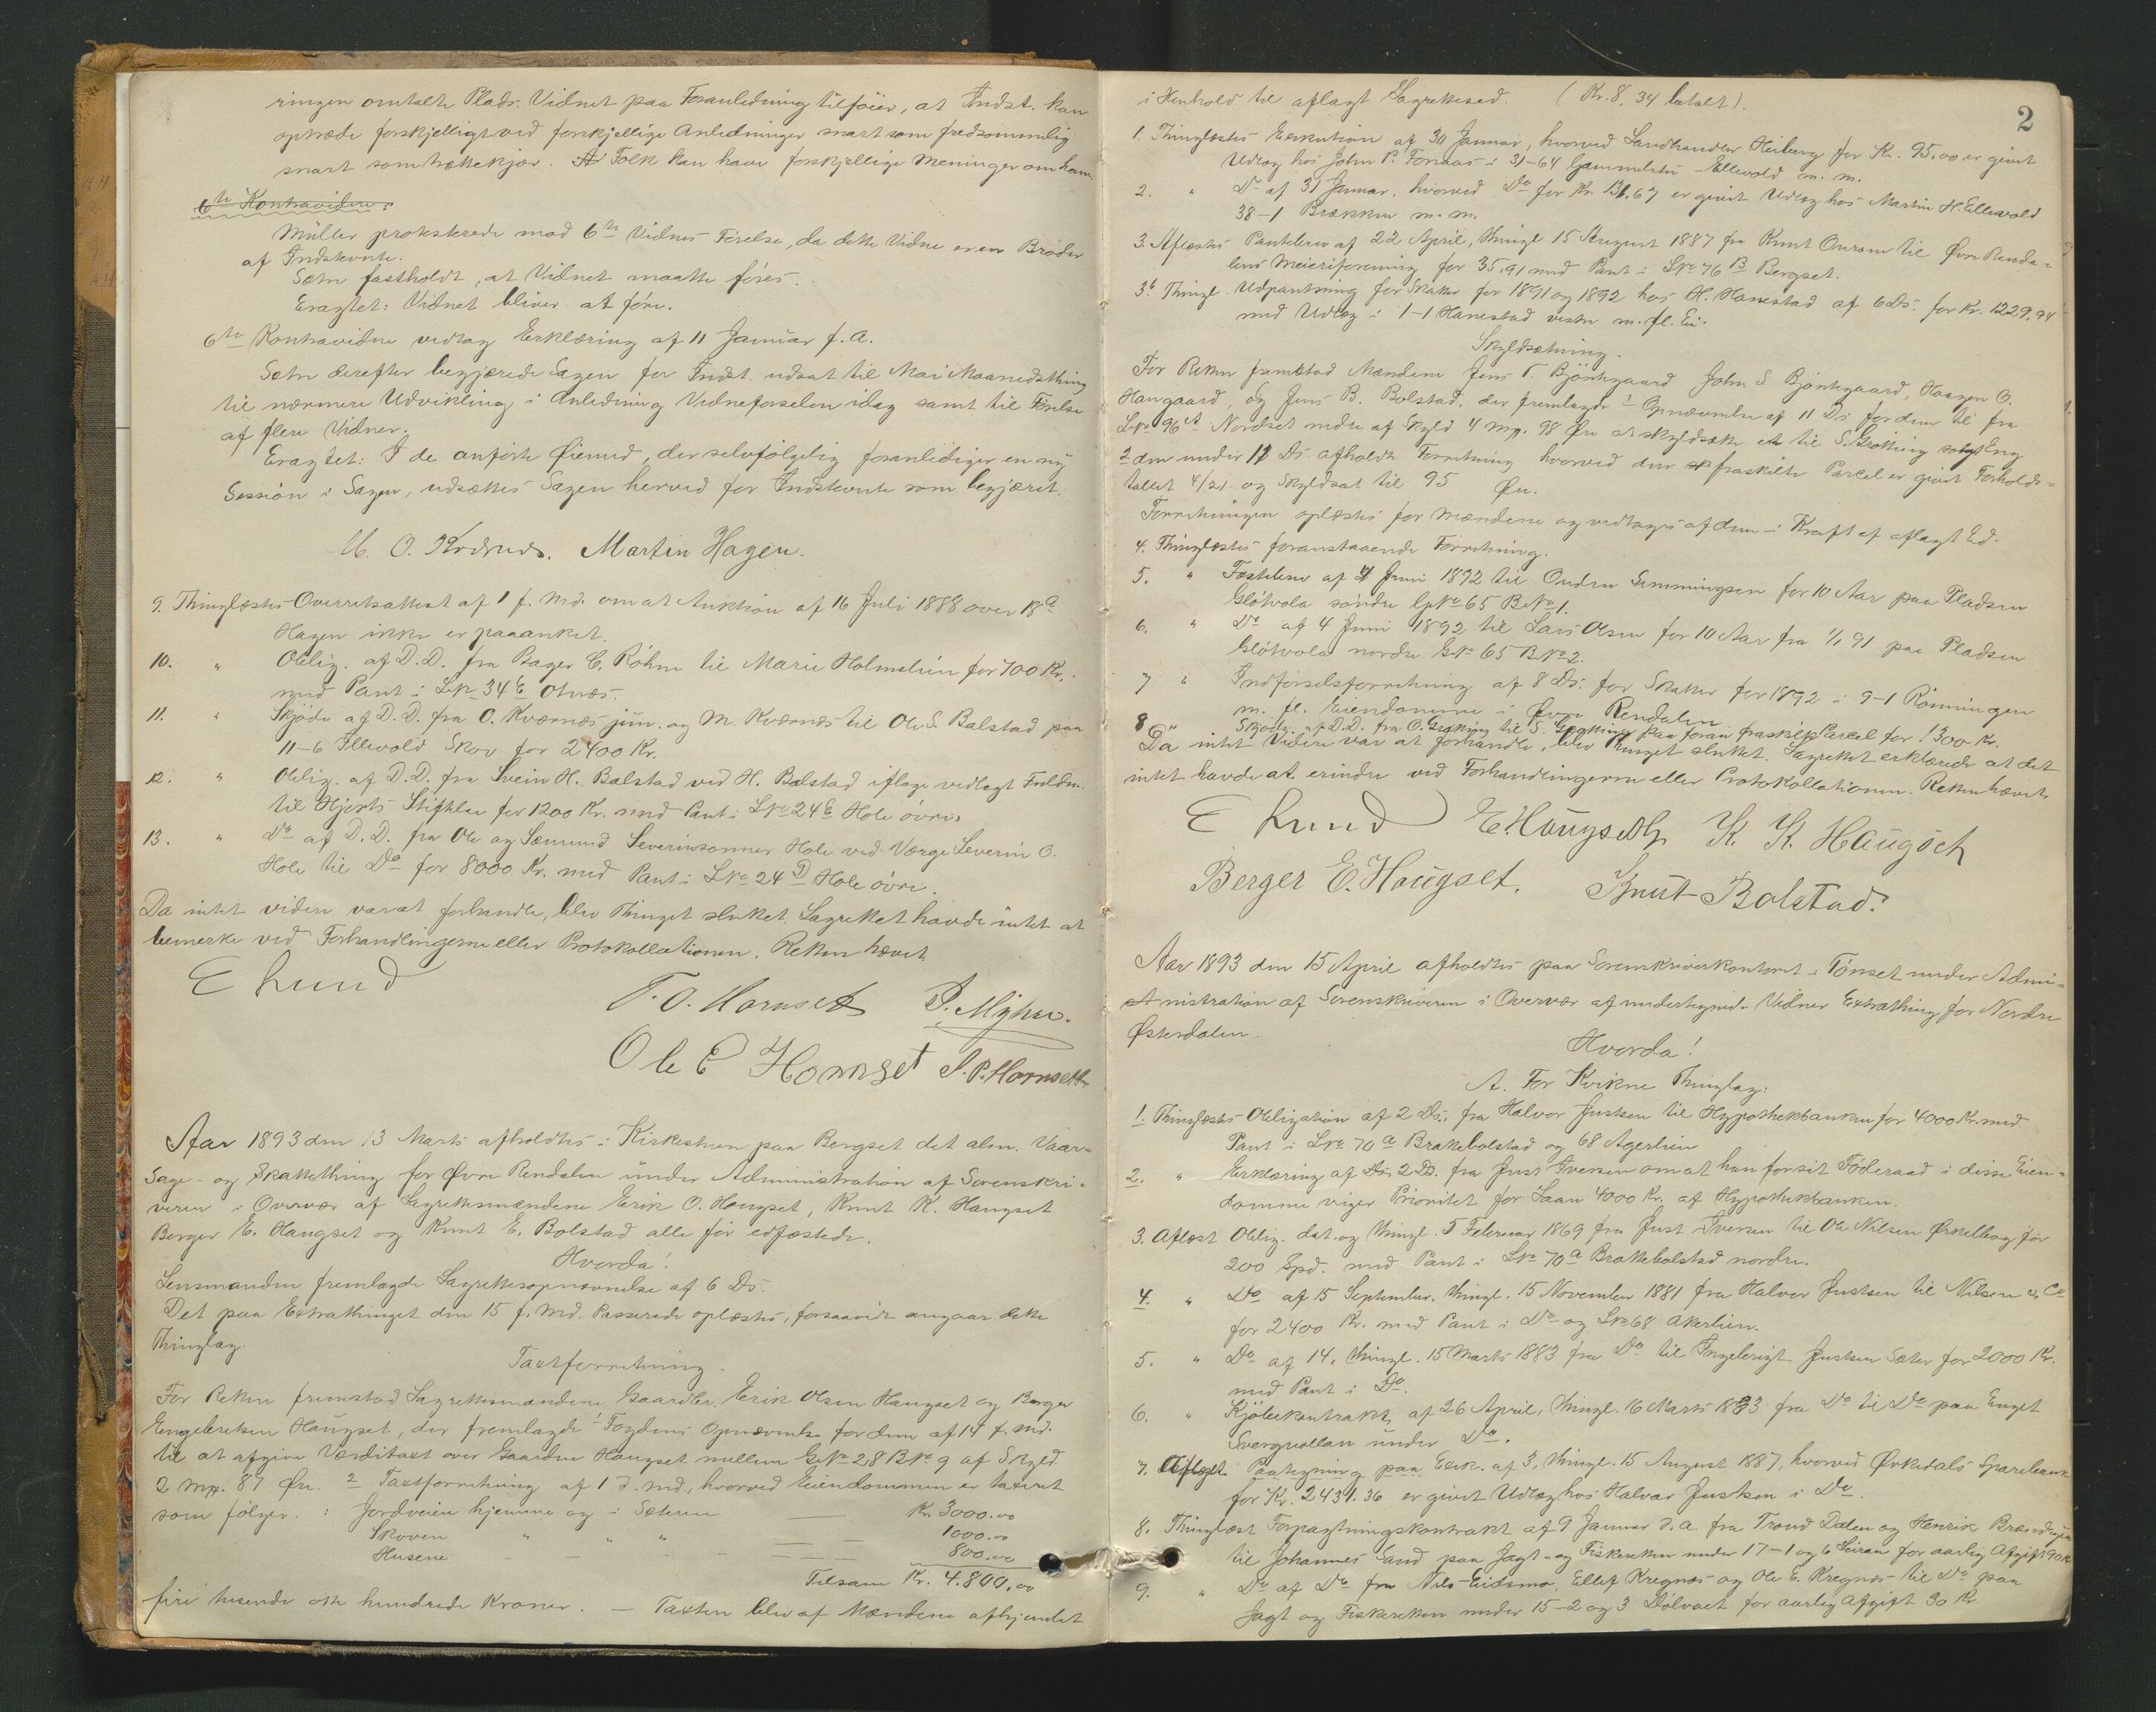 ringen omtalte Plads. Vidnet paa Foranledning tilføier, at Indst. kan
optræde forskjelligt ved forskjellige Anledninger snart som fredsommelig
snart som trættekjær. At Folk kan have forskjellige Meninger om ham.
6te Kontravidne:
Müller protesterede mod 6te Vidnes Førelse, da dette Vidne er en Broder
af Indstevnte.
Sætre fastholdt, at Vidnet maatte føres.
Eragtet: Vidnet bliver at føre.
6te Kontravidne vedtog Erklæring af 11 Januar f. A.
Sætre derefter begjærede Sagen for Indst. udsat til Mai Maanedsthing
til nærmere Udvikling i Anledning Vidneførselen idag samt til Førelse
af flere Vidner.
Eragtet: I de anførte Øiemed, der selvfølgelig foranlediger en ny
Session i Sagen, udsættes Sagen herved for Indstevnte som begjæret.
M. O. Martin Hagen.
9. Thinglæstes Overretsattest af 1 f. Md. om at Auktion af 16 Juli 1888 over 18a
Hagen ikke er paaanket.
10. " Oblig. af D.D. fra Bager C. Röhme til Marie Holmslien for 700 Kr.
med Pant i LNo 34b Otnæs.
11. " Skjøde af D.D. fra O. Kværnæs jun. og M. Kværnæs til Ole S. Balstad paa
11-6 Ellevold Skov for 2400 Kr.
12. " Oblig. af D.D. fra Svein H. Balstad ved H. Balstad ifløge vedlagt Fuldm.
til Hjorts Stiftelse for 1200 Kr. med Pant i LNo 24b Hole øvre
13. " Do af D.D. fra Ole og Sæmund Severinsønner Hole ved Værge Severin O.
Hole til Do for 8000 Kr. med Pant i LNo 24D Hole øvre.
Da intet videre var at forhandle, blev Thinget sluttet. Lagrettet havde intet at
bemerke ved Forhandlingerne eller Protokollationen. Retten hævet.
E Lund
T. O. Hornset P. Myhre.
Ole E Hornset J. P. Hornseth
Aar 1893 den 13 Marts afholdtes i Kirkestuen paa Bergset det alm. Vaar-
Sage- og Skattething for Øvre Rendalen under Administration af Sorenskri-
veren i Overvær af Lagrettesmændene Erik O. Haugset, Knut K. Haugset
Berger E. Haugset og Knut E. Bolstad alle før edfæstede.
Hvorda!
Lensmanden fremlagde Lagrettesopnævnelse af 6 Ds.
Det paa Extrathinget den 15 f. Md. Passerede oplæstes, forsaavidt angaar dette
Thinglag.
Taxtforretning.
For Retten fremstod Lagrettesmændene Gaardbr. Erik Olsen Haugset og Berger
Engebretsen Haugset, der fremlagde 1 Fogdens Opnævnelse for dem af 14 f. Md.
til at afgive Værditaxt over Gaarden Haugset mellem GNo 28 BNo 9 af Skyld
2 Mrk. 87 Øre. 2 Taxtforretning af 1 d. Md., hvorved Eiendommen er taxeret
som følger: Jordveien hjemme og i Sæteren Kr. 3000.00
Skoven " " 1000.00
Husene 800.00
Tilsam Kr. 4.800.00
fire tusende otte hundrede Kroner. — Taxten blev af Mændene afhjemlet
2
i Henhold til aflagt Lagrettesed. (Kr. 8,34 betalt).
1. Thinglæstes Exekution af 30 Januar, hvorved Landhandler Heiberg for Kr. 95,00 er givet
Udlæg hos John P. Fonaas i 31-64 Gammelstu-Ellevold m. m.
2. " Do af 31 Januar, hvorved Do for Kr. 131.67 er givet Udlæg hos Martin H. Ellevold
38-1 Brækken m. m.
3. Aflæstes Pantebrev af 22 April, thingl. 15 August 1887 fra Knut Ourom til Øvre Renda-
lens Meieriforening for 35,91 med Pant i LNo 76B Bergset.
3b Thingl. Udpantning for Skatter for 1891 og 1892 hos H. Hanestad af 6 Ds. for Kr. 1229,94
med Udlæg i 1-1 Hanestad vestre m. fl. Ei.
Skyldsætning.
For Retten fremstod Mændene Jens T. Bjöntegaard John S Bjöntegaard, Haagen O.
Haugaard, og Jens B. Bolstad, der fremlagde 1 Opnævnelse af 11 Ds for dem til fra
LNo 96a Nordset nedre af Skyld 4 Mrk. 98 Øre at skyldsætte et til S. Grøtting solgt Eng
2 den under 11 Ds afholdte Forretning hvorved den fraskilte Parcel er givet Forholds-
tallet 4/21 og Skyldsat til 95 Øre.
Forretningen oplæstes for Mændene og vedtoges af dem i Kraft af aflagt Ed.
4. Thinglæstes foranstaaende Forretning.
5. " Fæstebrev af 4 Juni 1892 til Ouden Simmingsen for 10 Aar paa Pladsen
Glötvola søndre GNo 65 BNo 1.
6. " Do af 4 Juni 1892 til Lars Olsen for 10 Aar fra 1/1 91 paa Pladsen
Glötvola nordre GNo 65 BNo 2.
7 " Indførselsforretning af 8 Ds. for Skatter for 1892 i 9-1 Rönningen
m. fl. Eiendomme i Øvre Rendalen
8 " Skjøde af D.D. fra O. Grøtting til S. Grøtting paa foran fraskilt Parcel for 1300 Kr.
Da intet Videre var at forhandle, blev Thinget sluttet. Lagrettet erklærede at det
intet havde at erindre ved Forhandlingerne eller Protokollationen. Retten hævet.
E Lund E. Haugseth K. K. Haugset
Berger E. Haugset. Knut Bolstad.
Aar 1893 den 15 April afholdtes paa Sorenskriverkontoret i Tönset under Admi-
nistration af Sorenskriveren i Overvær af undertegnede Vidner Extrathing for Nordre
Østerdalen.
Hvorda!
A. For Kvikne Thinglag:
1. Thinglæstes Obligation af 2 Ds. fra Halvor Justsen til Hypothekbanken for 4000 Kr. med
Pant i LNo 70a Brattebolstad og 68 Agerlien
2. " Erklæring af Ds 2 D. fra Just Iversen om at han for sit Föderaad i disse Eien-
domme viger Prioritet for Laan 4000 Kr. af Hypothekbanken.
3. Aflæst Oblig. dat. og thingl. 5 Februar 1869 fra Just Iversen til Ole Nilsen Ørkelbog for
200 Spd. med Pant i LNo 70a Brattebolstad nordre.
4. " Do af 15 September, thingl. 15 November 1881 fra Halvor Justsen til Nilsen & Co
for 2400 Kr. med Pant i Do og LNo 68 Akerlien.
5. " Do af 14, thingl. 15 Marts 1883 fra Do til Ingebrigt Justsen Sæter for 2000 Kr.
med Pant i Do.
6. " Kjöbekontrakt af 26 April, thingl. 16 Marts 1883 fra Do til Do paa Enget
under Do.
7. Aflæst Paategning paa Exek. af 3, thingl. 15 August 1887, hvorved Ørkedals Sparebank
for Kr. 2431.36 er givet Udlæg hos Halvor Justsen i Do.
8. Thinglæst Forpagtningskontrakt af 9 Januar d. A. fra Trond Dalen og Henrik
til Johannes Sand paa Jagt- og Fiskeretten under 17-1 og 6 for aarlig Afgift 90 Kr
9. " Do af Do fra Nils Eidsmo, Ellef Kregnæs og Ole E. Kregnæs til Do paa
Jagt og Fiskeretten under 15-2 og 3 for aarlig Afgift 30 Kr